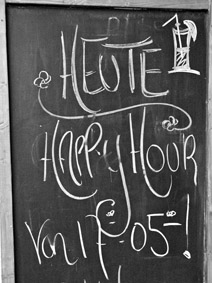 HEUTE
HAPPY HOUR
Von 17°°-05°°!